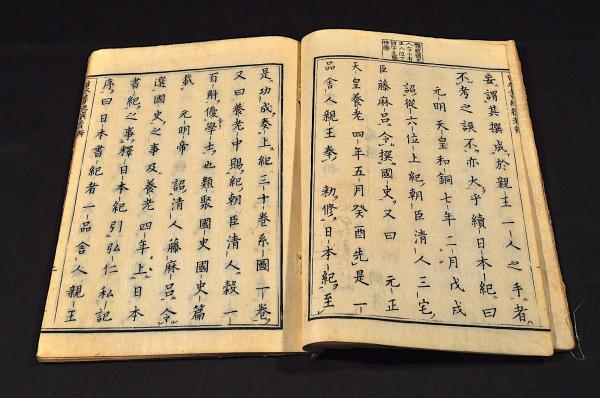 妄謂其撰成於親王一人之手者
不考之誤不亦大乎續日本紀曰
元明天皇和銅七年二月戊戌
詔從六位上紀朝臣清人三宅
臣藤麻呂令撰國史又曰 元正
天皇養老四年五月癸酉先是一
品舍人親王奉 勅修日本紀至
是功成奏上紀三十卷系圖一卷
又曰養老中賜紀朝臣清人穀一
百斛優學士也類聚國史國史篇
載 元明帝 詔清人藤麻呂令
選國史之事及養老四年上日本
書紀之事釋日本紀引弘仁私記
序曰日本書紀者一品舍人親王